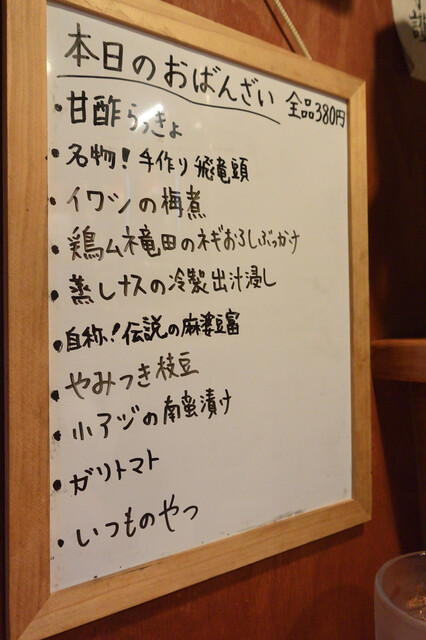 本日のおばんざい 全品380円
・甘酢らっきょ
・名物!手作り飛竜頭
・イワシの梅煮
・鶏ムネ竜田のネギおろしぶっかけ
・蒸しナスの冷製出汁浸し
・自称!伝説の麻婆豆富
・やみつき枝豆
・小アジの南蛮漬け
・ガリトマト
・いつものやつ